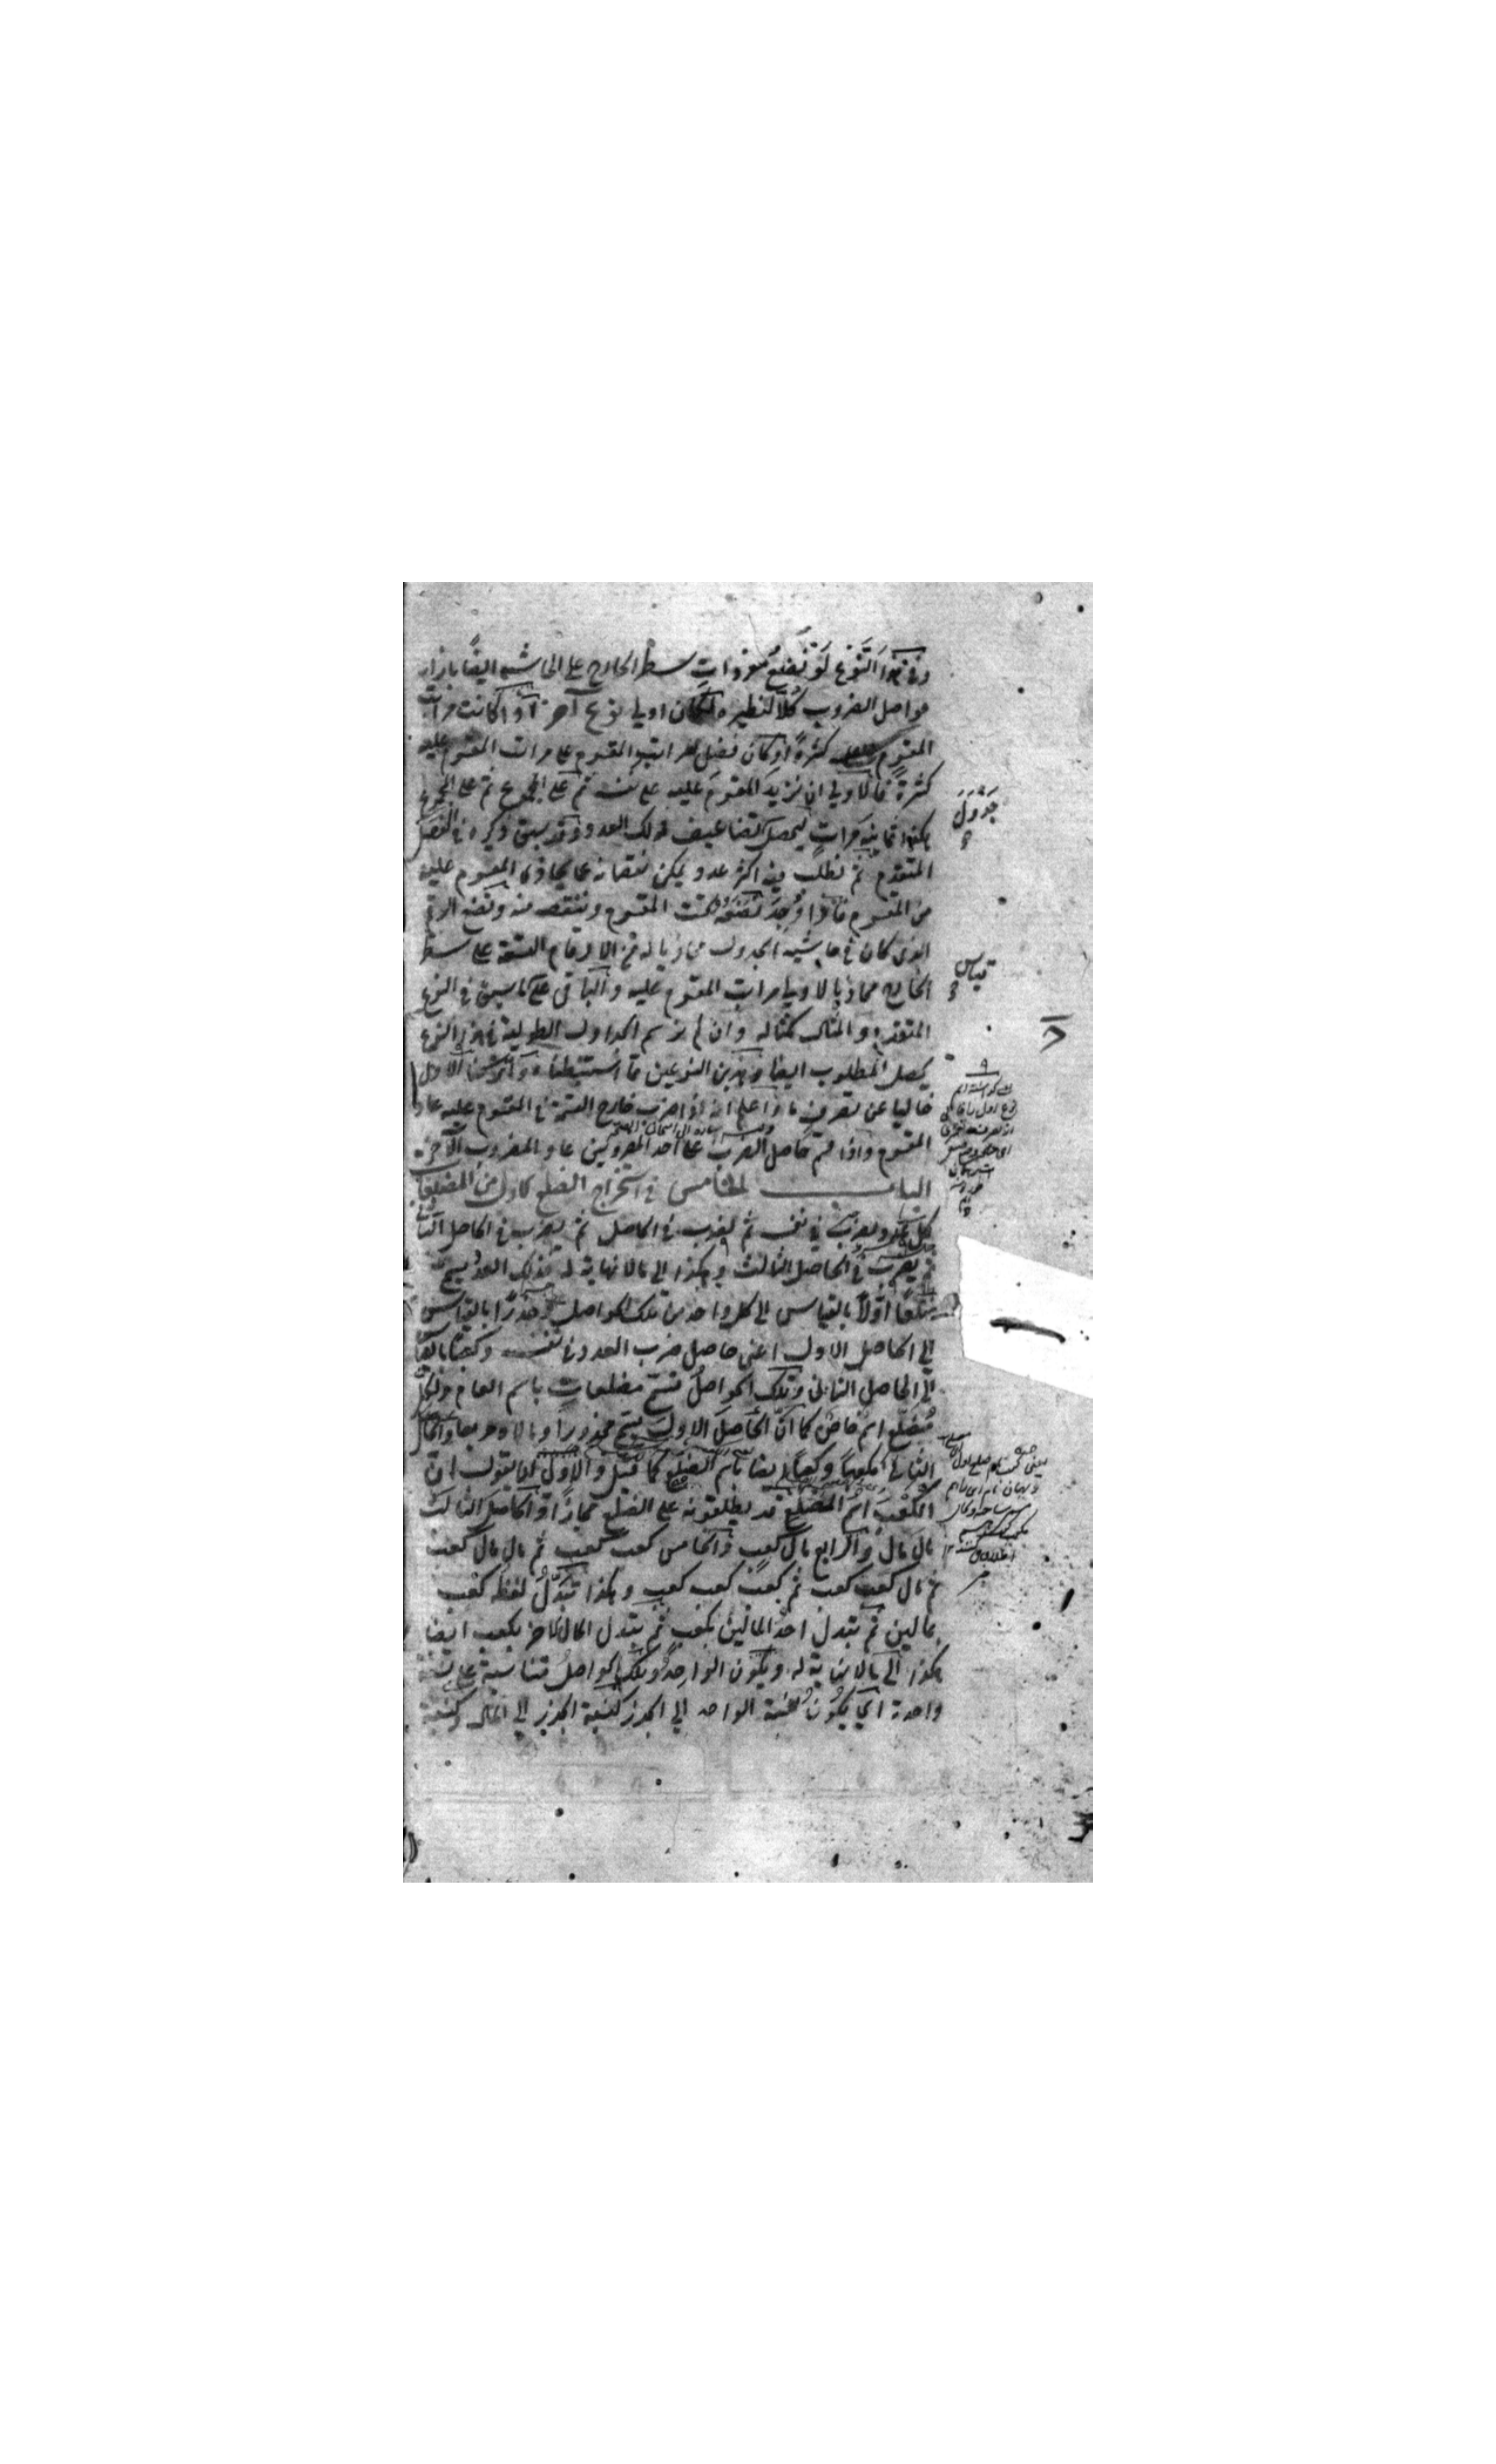 وفي هذا النوع لو نضع مفردات سطر الخارج على الحاشية ايضا بازاء
حواصل الضروب كلا لنظيره لكان اولى نوع آخر اذا كانت مراتب
المقسوم كثرة او كان فضل مراتب المقسوم على مراتب المقسوم عليه
كثرة فالاولى ان نزيد المقسوم عليه على نفسه ثم على المجموع ثم على المجموع
هكذا ثمانية مرات ليحصل تضاعيف ذلك العدد وقد سبق ذكره في الفصل
المتقدم ثم نطلب فيه اكثر عدد يمكن نقصانه مما يحاذى المقسوم عليه
من المقسوم فاذا وجد نضعه تحت المقسوم وننقصه منه ونضع الرقم
الذى كان في حاشية الجدول محاذيا له من الارقام التسعة على سطر
الخارج محاذيا لاولى مراتب المقسوم عليه والباقى على ما سبق في النوع
المتقدم والمثال كمثاله وان لم نرسم الجداول الطولية في هذا النوع
يحصل المطلوب ايضا وهذين النوعين مما استنبطناه وما تركنا الاول
خاليا عن تصرف ما واعلم انه اذا ضرب خارج القسمة في المقسوم عليه عاد
المقسوم واذا قسم حاصل الضرب على احد المضروبين عاد المضروب الآخر
الباب الخامس في استخراج الضلع الاول من المضلعات
كل عدد يضرب في نفسه ثم يضرب في الحاصل ثم يضرب في الحاصل الثانى
ثم يضرب في الحاصل الثالث وهكذا الى ما لا نهاية له فذلك العدد يسمى
ضلعا اولا بالقياس الى كل واحد من تلك الحواصل وجذرا بالقياس
الى الحاصل الاول اعنى حاصل ضرب العدد في نفسه وكعبا بالقياس
الى الحاصل الثانى وتلك الحواصل تسمى مضلعات باسم العام ولكل
مضلع اسم خاص كما ان الحاصل الاول يسمى مجذورا ومالا ومربعا والحاصل
الثانى مكعبا وكعبا ايضا باسم الضلع كما قيل والاولى ان يقول ان
الكعب اسم المضلع قد يطلقونه على الضلع مجازا والحاصل الثالث
مال مال والرابع مال كعب والخامس كعب كعب ثم مال مال كعب
ثم مال كعب كعب ثم كعب كعب كعب وهكذا تبدل لفظ كعب
بمالين ثم تبدل احد المالين بكعب ثم تبدل المال الآخر بكعب ايضا
هكذا الى ما لا نهاية له ويكون الواحد وتلك الحواصل متناسبة على نسبة
واحدة اى يكون نسبة الواحد الى الجذر كنسبة الجذر الى المال وكنسبة
جدول
قياس